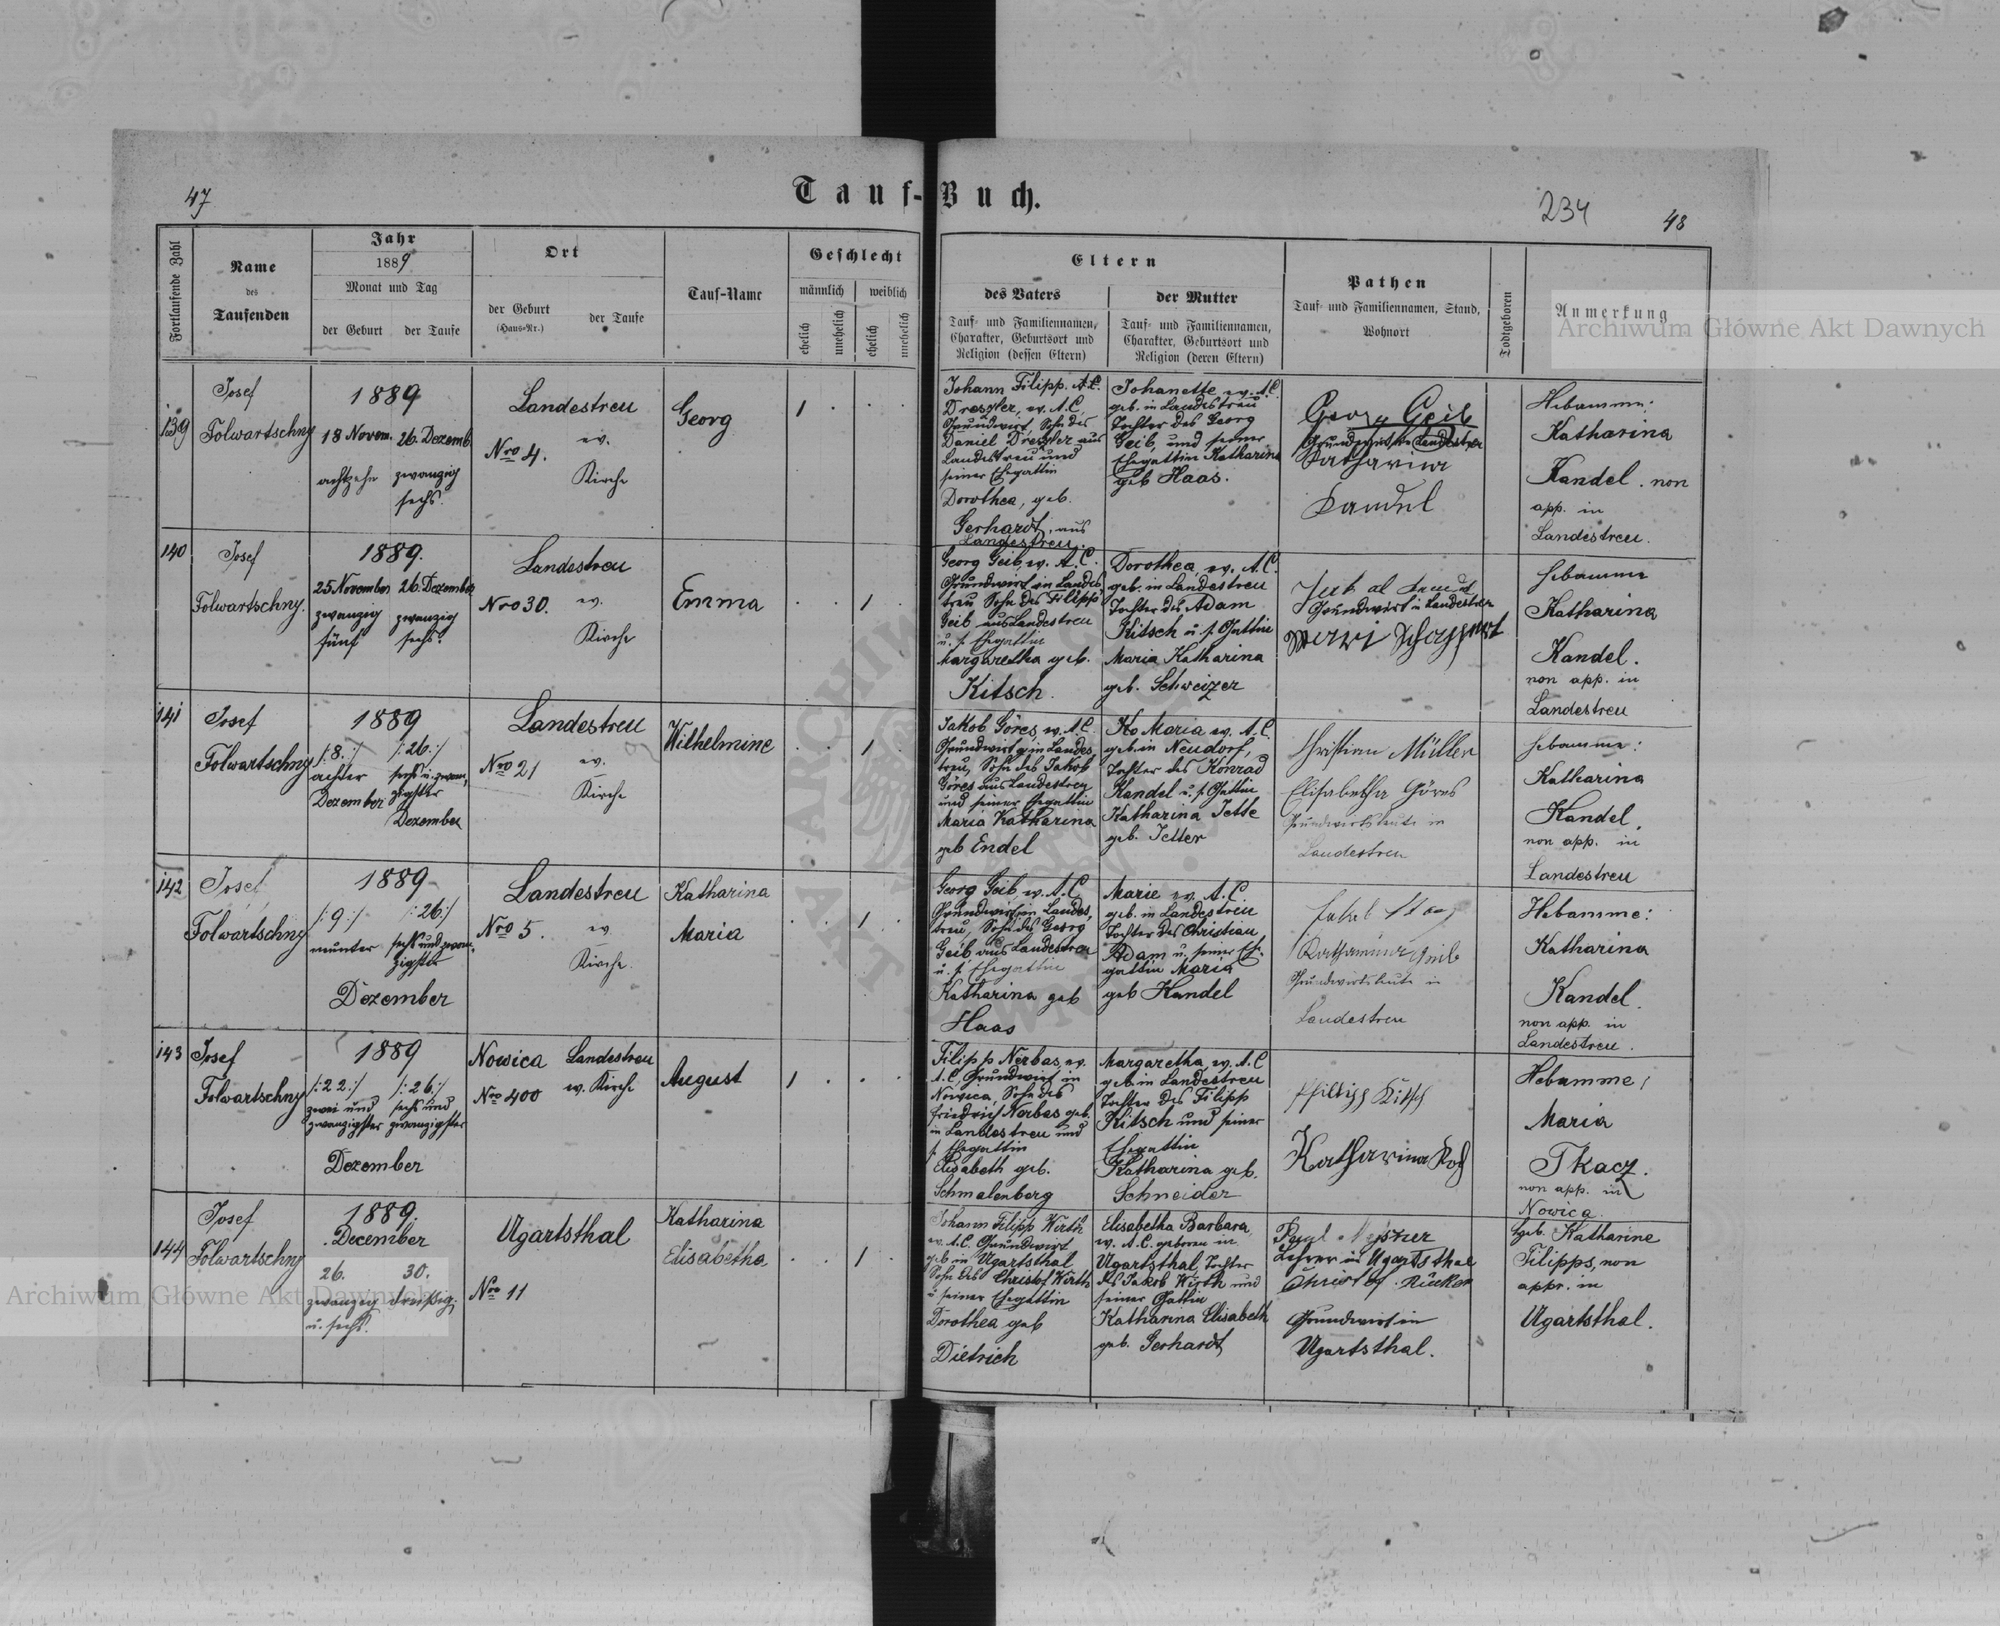 47
Tauf-Buch.
234
48
Fortlaufende Zahl
Name
des
Taufenden
Jahr
1889
Monat und Tag
der Geburt der Taufe
Ort
der Geburt
(Haus-Nr.)
der Taufe
Tauf-Name
Geschlecht
männlich weiblich
ehelich unehelich ehelich unehelich
Eltern
des Vaters
Tauf- und Familiennamen,
Charakter, Geburtsort und
Religion (dessen Eltern)
der Mutter
Tauf- und Familiennamen,
Charakter, Geburtsort und
Religion (deren Eltern)
Pathen
Tauf- und Familiennamen, Stand,
Wohnort
Todtgeboren
Anmerkung
Archiwum Główne Akt Dawnych
139
Josef
Folwartschny
1889
18 Novem. 26. Dezemb
achtzehn zwanzig
sechs.
Landestreu
Nro 4.
ev.
Kirche
Georg
1
Johann Filipp. A.C.
Dreszler, ev. A.C.
Grundwirt, Sohn des
Daniel Dreszler aus
Landestreu und
seiner Ehegattin
Dorothea, geb.
Gerhardt, aus
Landestreu.
Johanette ev. A.C.
geb. in Landestreu
Tochter des Georg
Geib, und seiner
Ehegattin Katharina
geb Haas.
Georg Geib
Grundwirt in Landestreu
Katharina
Kandel
Hebamme:
Katharina
Kandel. non
app. in
Landestreu.
140
Josef
Folwartschny.
1889.
25 November 26. Dezember
zwanzig zwanzig
fünf sechs.
Landestreu
Nro 30.
ev.
Kirche
Emma
1
Georg Geib ev. A.C.
Grundwirt in Landes
treu Sohn des Filipp
Geib aus Landestreu
u. s. Ehegattin
Margaretha geb.
Kitsch.
Dorothea, ev. A.C.
geb. in Landestreu
Tochter des Adam
Kitsch u. s. Gattin
Maria Katharina
geb. Schweizer
Grundwirt in Landestreu
Hebamme
Katharina
Kandel.
non app. in
Landestreu
141
Josef
Folwartschny
1889
/:8.:/ /:26.:/
achter sechs u. zwan,
Dezember zigster
Dezember
Landestreu
Nro 21
ev.
Kirche
Wilhelmine
1
Jakob Göres, ev. A.C.
Grundwirt in Landes,
treu, Sohn des Jakob
Göres aus Landestreu
und seiner Ehegattin
Maria Katharina
geb Endel
Maria ev. A.C.
geb. in Neudorf,
Tochter des Konrad
Kandel u. s. Gattin
Katharina Jette
geb. Jetter
Christian Müller
Elisabetha Göres
Grundwirtsleute in
Landestreu
Hebamme:
Katharina
Kandel.
non app. in
Landestreu
142
Josef
Folwartschny
1889
/:9:/ /:26:/
neunter sechs und zwan,
zigster
Dezember
Landestreu
Nro 5.
ev
Kirche.
Katharina
Maria
1
Georg Geib ev. A.C.
Grundwirt in Landes,
treu, Sohn des Georg
Geib aus Landestreu
u. s. Ehegattin
Katharina geb
Haas
Marie ev. A.C.
geb. in Landestreu
Tochter des Christian
Adam u. seiner Eh-
gattin Maria
geb Kandel
Geib
Grundwirtsleute in
Landestreu
Hebamme:
Katharina
Kandel.
non app. in
Landestreu.
143
Josef
Folwartschny
1889
/:22:/ /:26:/
zwei und sechs und
zwanzigster zwanzigster
Dezember
Nowica
Nro 400
Landestreu
ev. Kirche
August
1
Filipp Nerbas, ev.
A.C, Grundwirt in
Nowica, Sohn des
Friedrich Nerbas geb.
in Landestreu und
s. Ehegattin
Elisabeth geb.
Schmalenberg
Margaretha, ev. A.C
geb. in Landestreu
Tochter des Filipp
Kitsch und seiner
Ehegattin
Katharina geb.
Schneider
Philipp Kitsch
Katharina
Hebamme:
Maria
Tkacz.
non app. in
Nowica.
144
Josef
Folwartschny
1889.
December
26. 30.
zwanzig dreißig.
u. sechs.
Ugartsthal
Nro 11
Katharina
Elisabetha
1
Johann Filipp Wirth
ev. A.C. Grundwirt
geb in Ugartsthal
Sohn des Christof Wirth
u seiner Ehegattin
Dorothea geb
Dietrich
Elisabetha Barbara,
ev. A.C. geboren in
Ugartsthal, Tochter
des Jakob Wirth und
seiner Gattin
Katharina Elisabeth
geb. Gerhardt
Lehrer in Ugartsthal
Christof Rücker
Grundwirt in
Ugartsthal.
Heb. Katharine
Filipps, non
appr. in
Ugartsthal.
Archiwum Główne Akt Dawnych